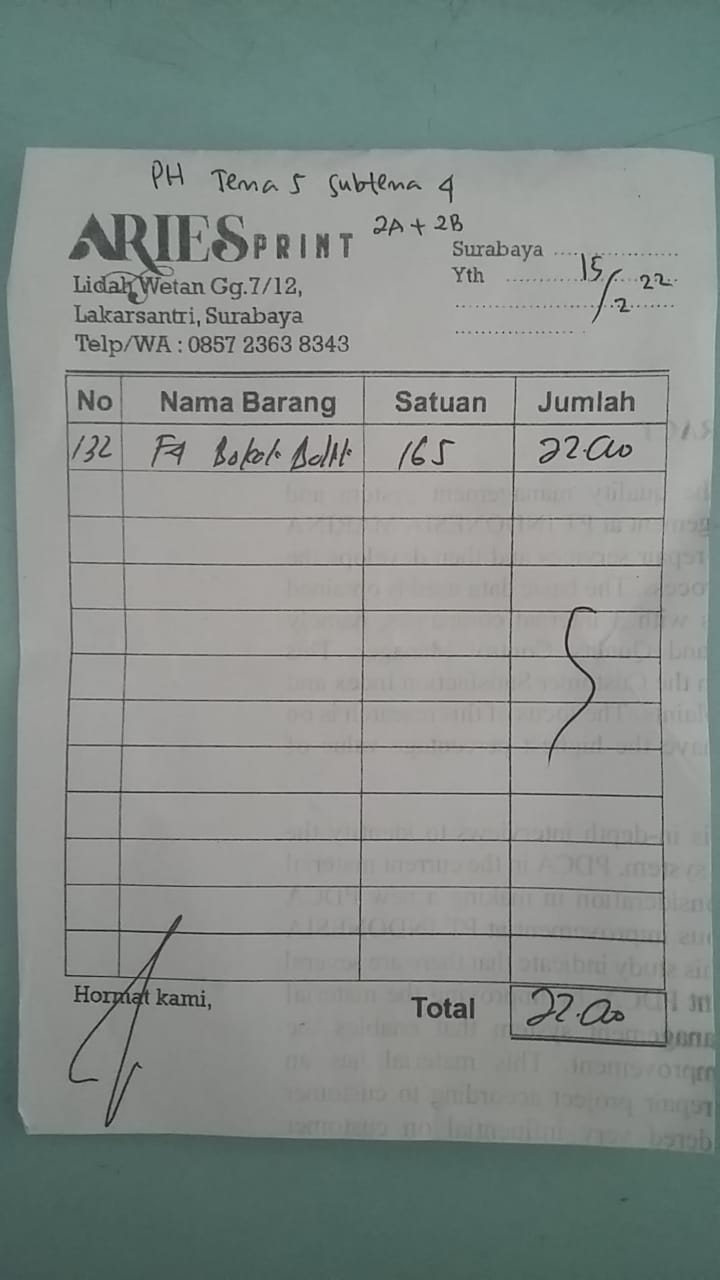 PH Tema 5 Subtema 4
2A + 2B
ARIESPRINT
Lidah Wetan Gg.7/12,
Lakarsantri, Surabaya
Telp/WA : 0857 2363 8343
Surabaya ....................
Yth .......... 15/2 22
No Nama Barang Satuan Jumlah
132 F4 Bolak 165 22.000
Hormat kami,
Total 22.000